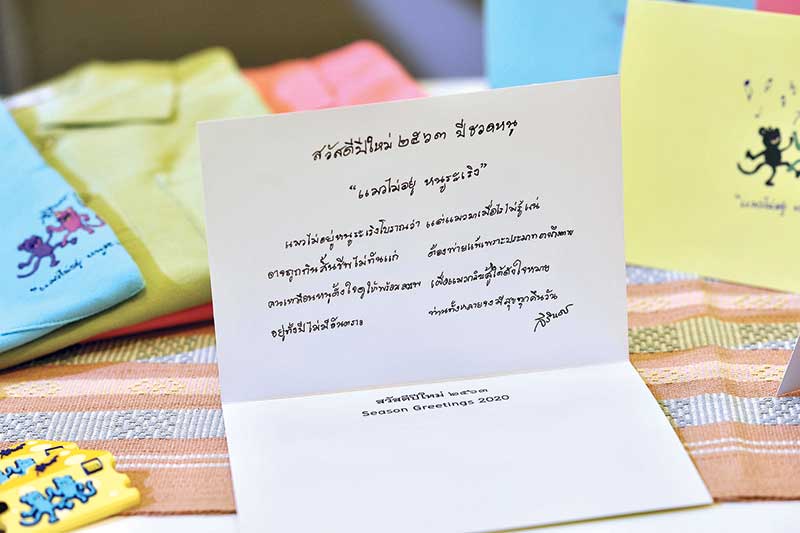 สวัสดีปีใหม่ ๒๕๖๓ ปีชวดหนู
“แมวไม่อยู่ หนูระเริง”
แมวไม่อยู่หนูระเริงโบราณว่า แต่แมวมาเมื่อไรไม่รู้แน่
อาจถูกกินสิ้นชีพไม่ทันแก่ ต้องพ่ายแพ้เพราะประมาท
คนเหมือนหนูตั้งใจดูให้พร้อม
อยู่ทั้งปีไม่มีอันตราย ท่านทั้งหลายจงมีสุขทุกคืนวัน
สิรินธร
สวัสดีปีใหม่ ๒๕๖๓
Season Greetings 2020
"แมวไม่อยู่ หนูระ
"แมวไม่อยู่